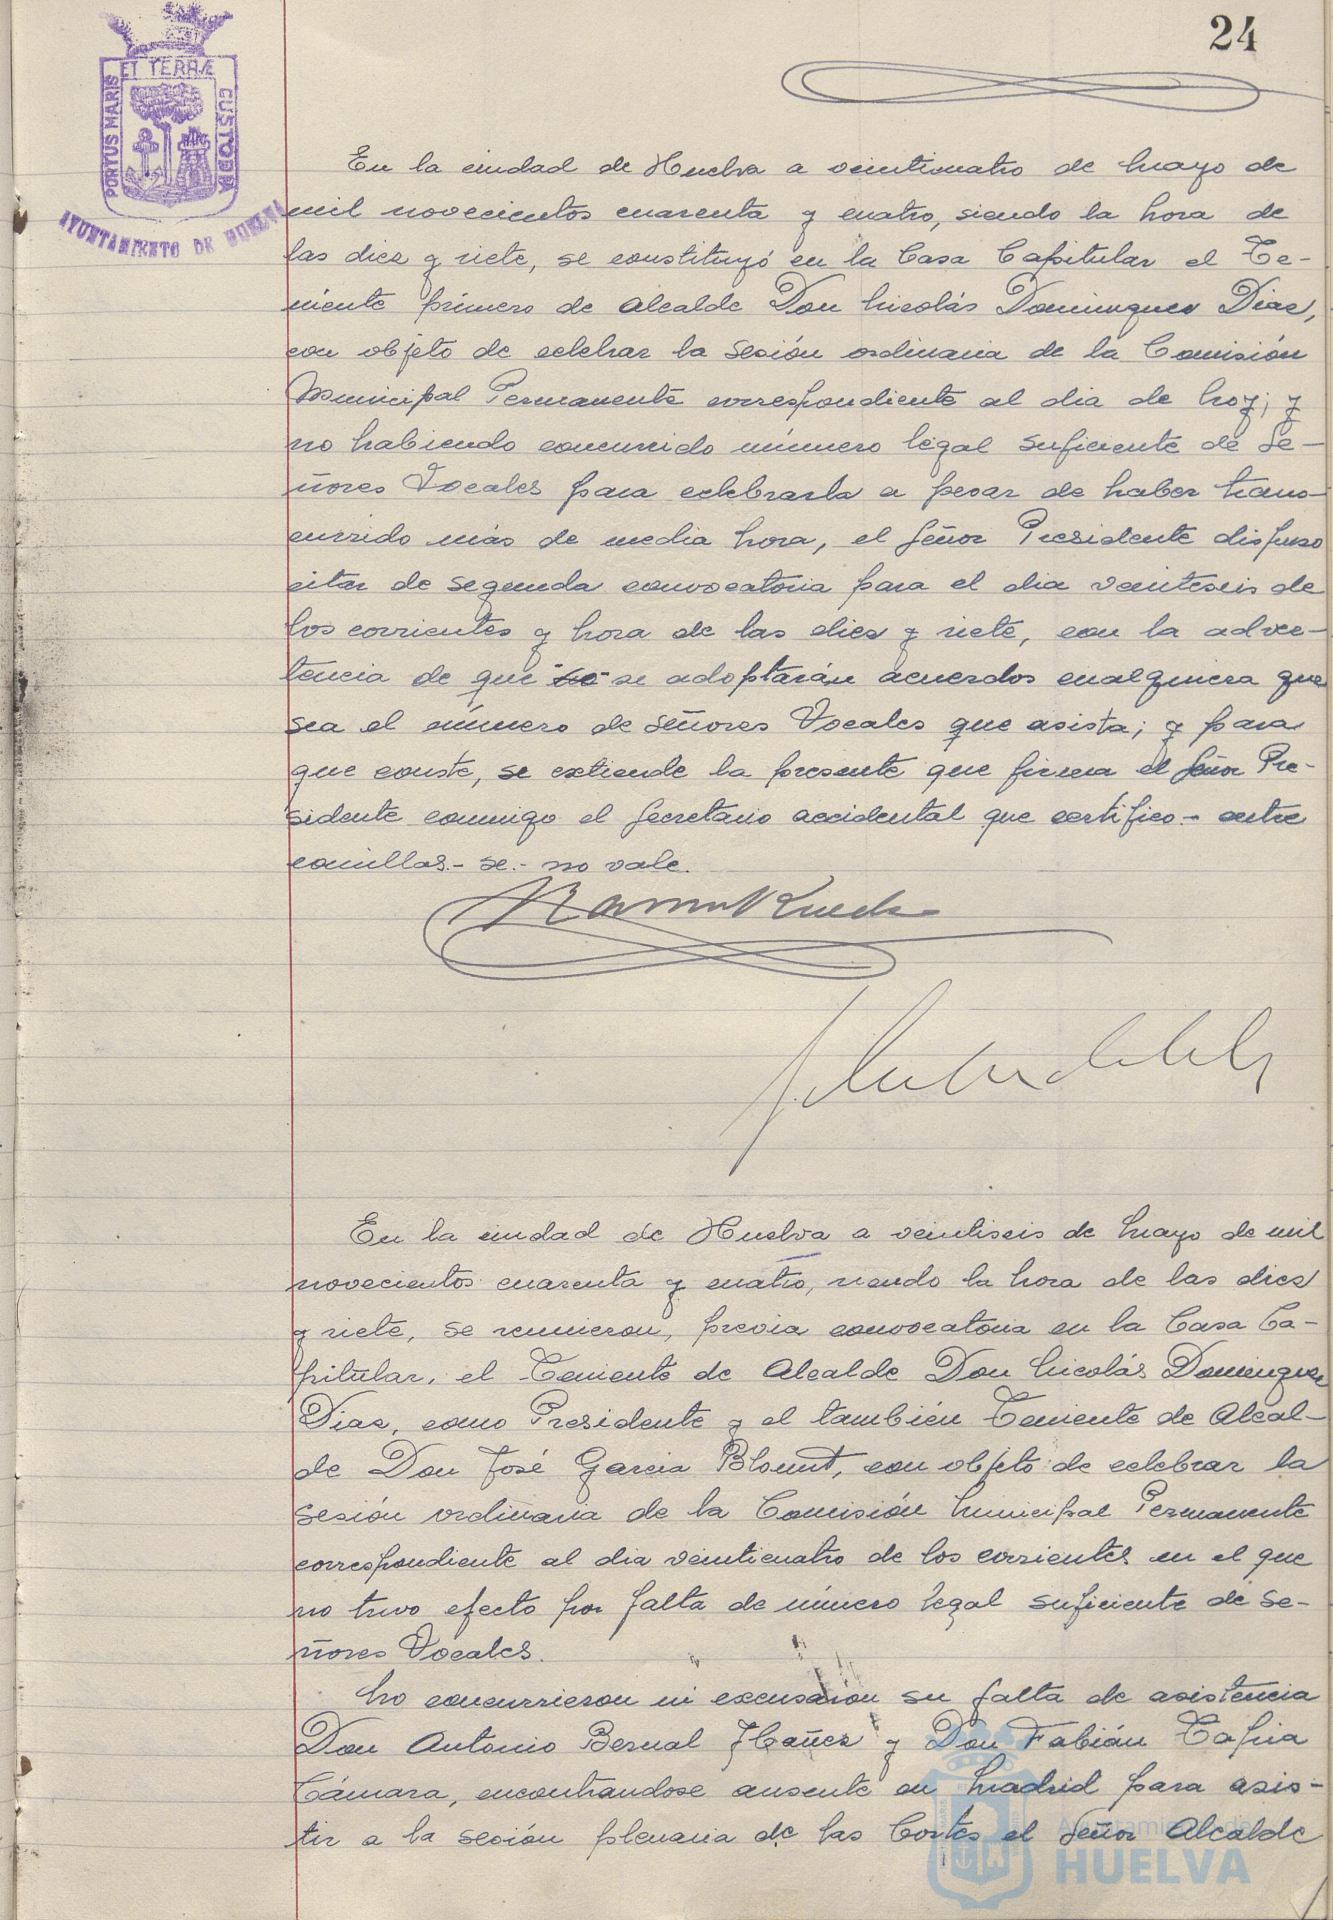 24
PORTUS MARIS ET TERRÆ CUSTODIA
AYUNTAMIENTO DE HUELVA
En la ciudad de Huelva a veinticuatro de Mayo de
mil novecientos cuarenta y cuatro, siendo la hora de
las diez y siete, se constituyó en la Casa Capitular el Te-
niente primero de Alcalde Don Nicolás Dominguez Diaz,
con objeto de celebrar la sesión ordinaria de la Comisión
Municipal Permanente correspondiente al dia de hoy; y
no habiendo concurrido número legal suficiente de Se-
ñores Vocales para celebrarla a pesar de haber trans-
currido más de media hora, el Señor Presidente dispuso
citar de segunda convocatoria para el dia veintiseis de
los corrientes y hora de las diez y siete, con la adver-
tencia de que "se" se adoptarán acuerdos cualquiera que
sea el número de Señores Vocales que asista; y para
que conste, se extiende la presente que firma el Señor Pre-
sidente conmigo el Secretario accidental que certifico.- entre
comillas.- se.- no vale.
En la ciudad de Huelva a veintiseis de Mayo de mil
novecientos cuarenta y cuatro, siendo la hora de las diez
y siete, se reunieron, previa convocatoria en la Casa Ca-
pitular, el Teniente de Alcalde Don Nicolás Dominguez
Diaz, como Presidente y el también Teniente de Alcal-
de Don José Garcia Blount, con objeto de celebrar la
sesión ordinaria de la Comisión Municipal Permanente
correspondiente al dia veinticuatro de los corrientes en el que
no tuvo efecto por falta de número legal suficiente de Se-
ñores Vocales.
No concurrieron ni excusaron su falta de asistencia
Don Antonio Bernal Ibañez y Don Fabián Tapia
Cámara, encontrandose ausente en Madrid para asis-
tir a la sesión plenaria de las Cortes el Señor Alcalde
Ayuntamiento de
HUELVA